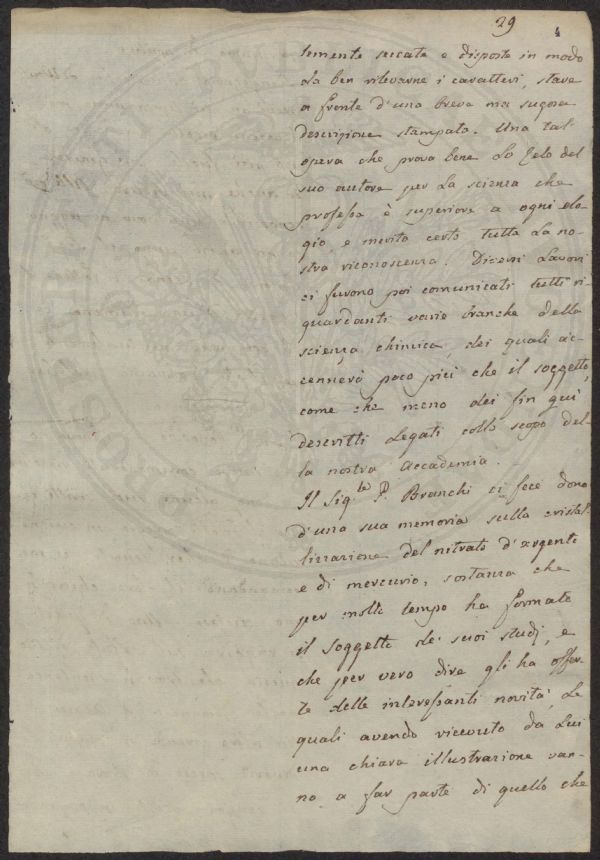 29
4
temente seccate e disposte in modo
da ben rilevarne i caratteri, stare
a fronte d'una breve ma sugosa
descrizione stampata. Una tal'
opera che prova bene lo zelo del
suo autore per la scienza che
professa è superiore a ogni elo-
gio e merita certo tutta la no-
stra riconoscenza. Diversi lavori
ci furono poi comunicati tutti ri-
guardanti varie branche della
scienza chimica, dei quali ac-
cennerò poco più che il soggetto,
come che meno dei fin qui
descritti legati collo scopo del-
la nostra Accademia.
Il Sig.re P. Branchi ci fece dono
d'una sua memoria sulla cristal-
lizzazione del nitrato d'argento
e di mercurio, sostanza che
per molto tempo ha formato
il soggetto de' suoi studj, e
che per vero dire gli ha offer-
te delle interessanti novità, le
quali avendo ricevuto da lui
una chiara illustrazione van-
no a far parte di quello che